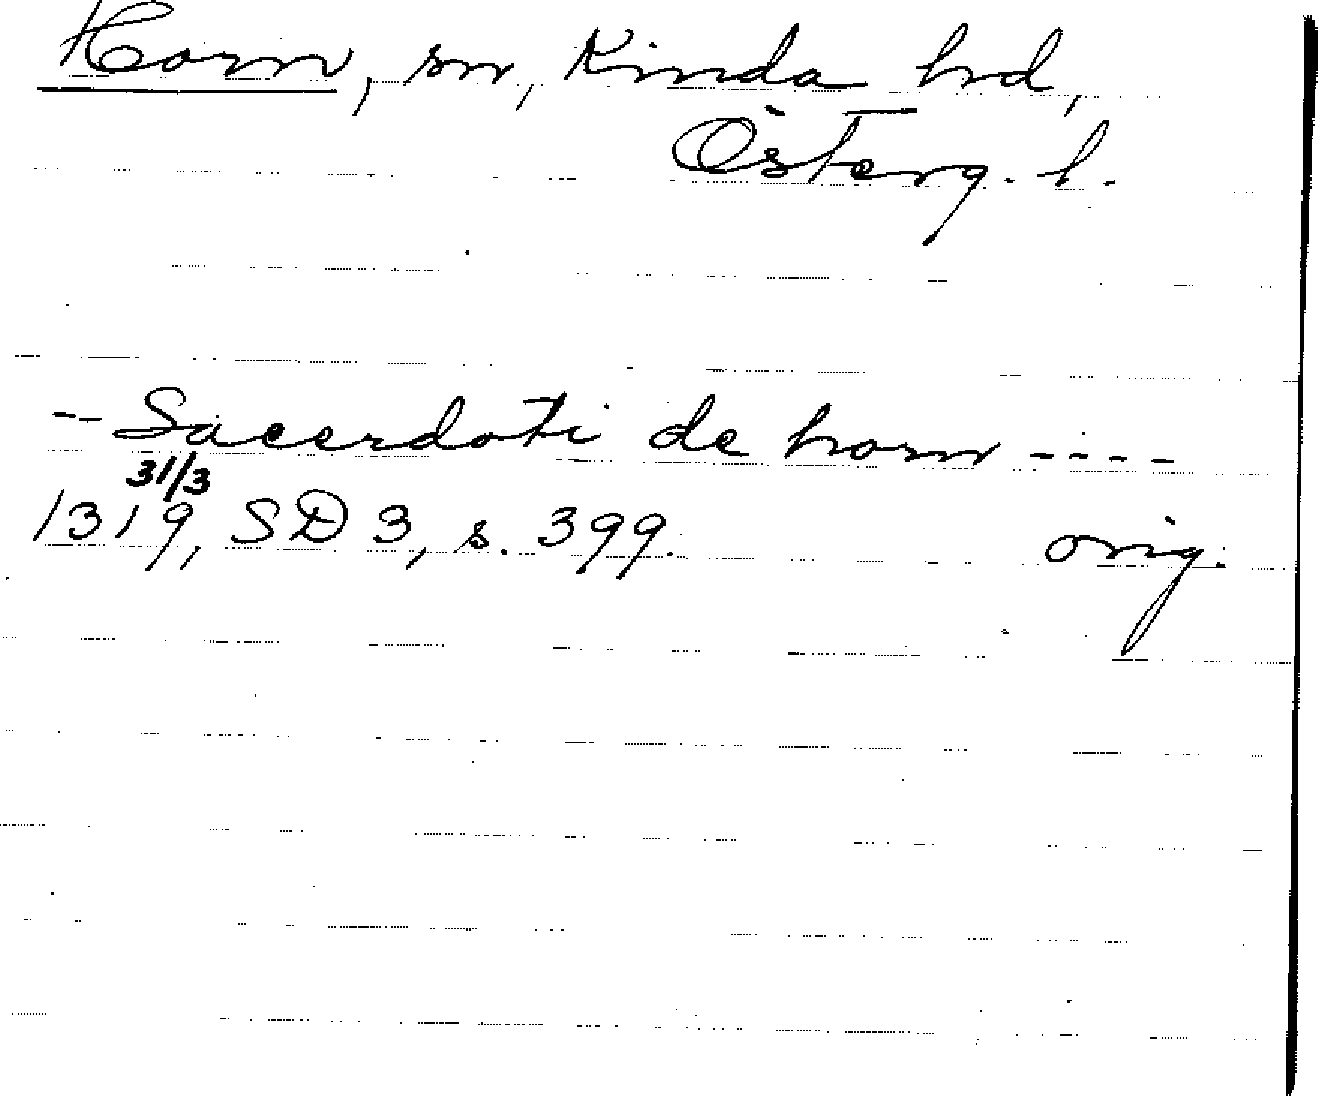 Horn, sn, Kinda hd,
Österg. l.
-- Sacerdoti de horn ----
31/3
1319, SD 3, s. 399. orig.